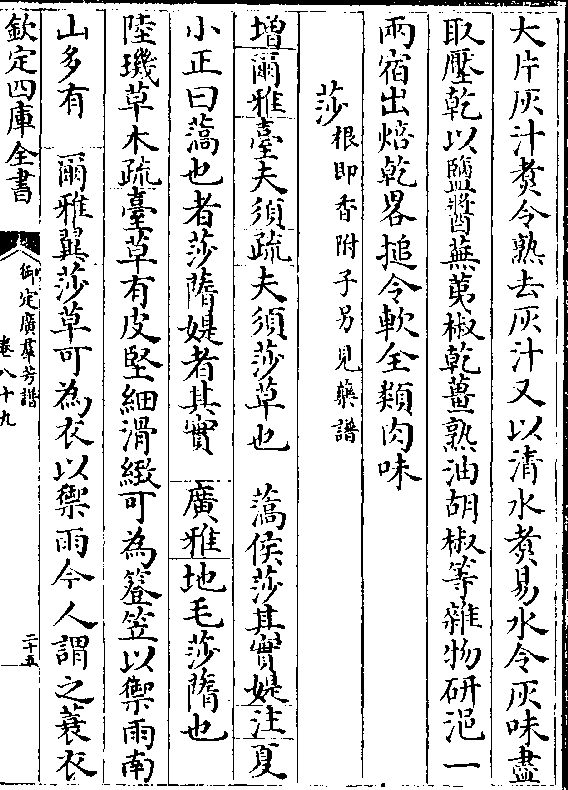 大片灰汁煮令熟去灰汁又以清水煮易水令灰味盡
取壓乾以鹽醬蕪荑椒乾薑熟油胡椒等雜物研浥一
兩宿出焙乾畧搥令軟全類肉味
莎根即香附子另見藥譜
增爾雅臺夫須疏夫須莎草也 薃侯莎其實媞注夏
小正曰薃也者莎蓨媞者其實 廣雅地毛莎蓨也
陸璣草木疏臺草有皮堅細滑緻可為簦笠以禦雨南
山多有 爾雅翼莎草可為衣以禦雨今人謂之蓑衣
欽定四庫全書
御定廣羣芳譜
卷八十九
二十五